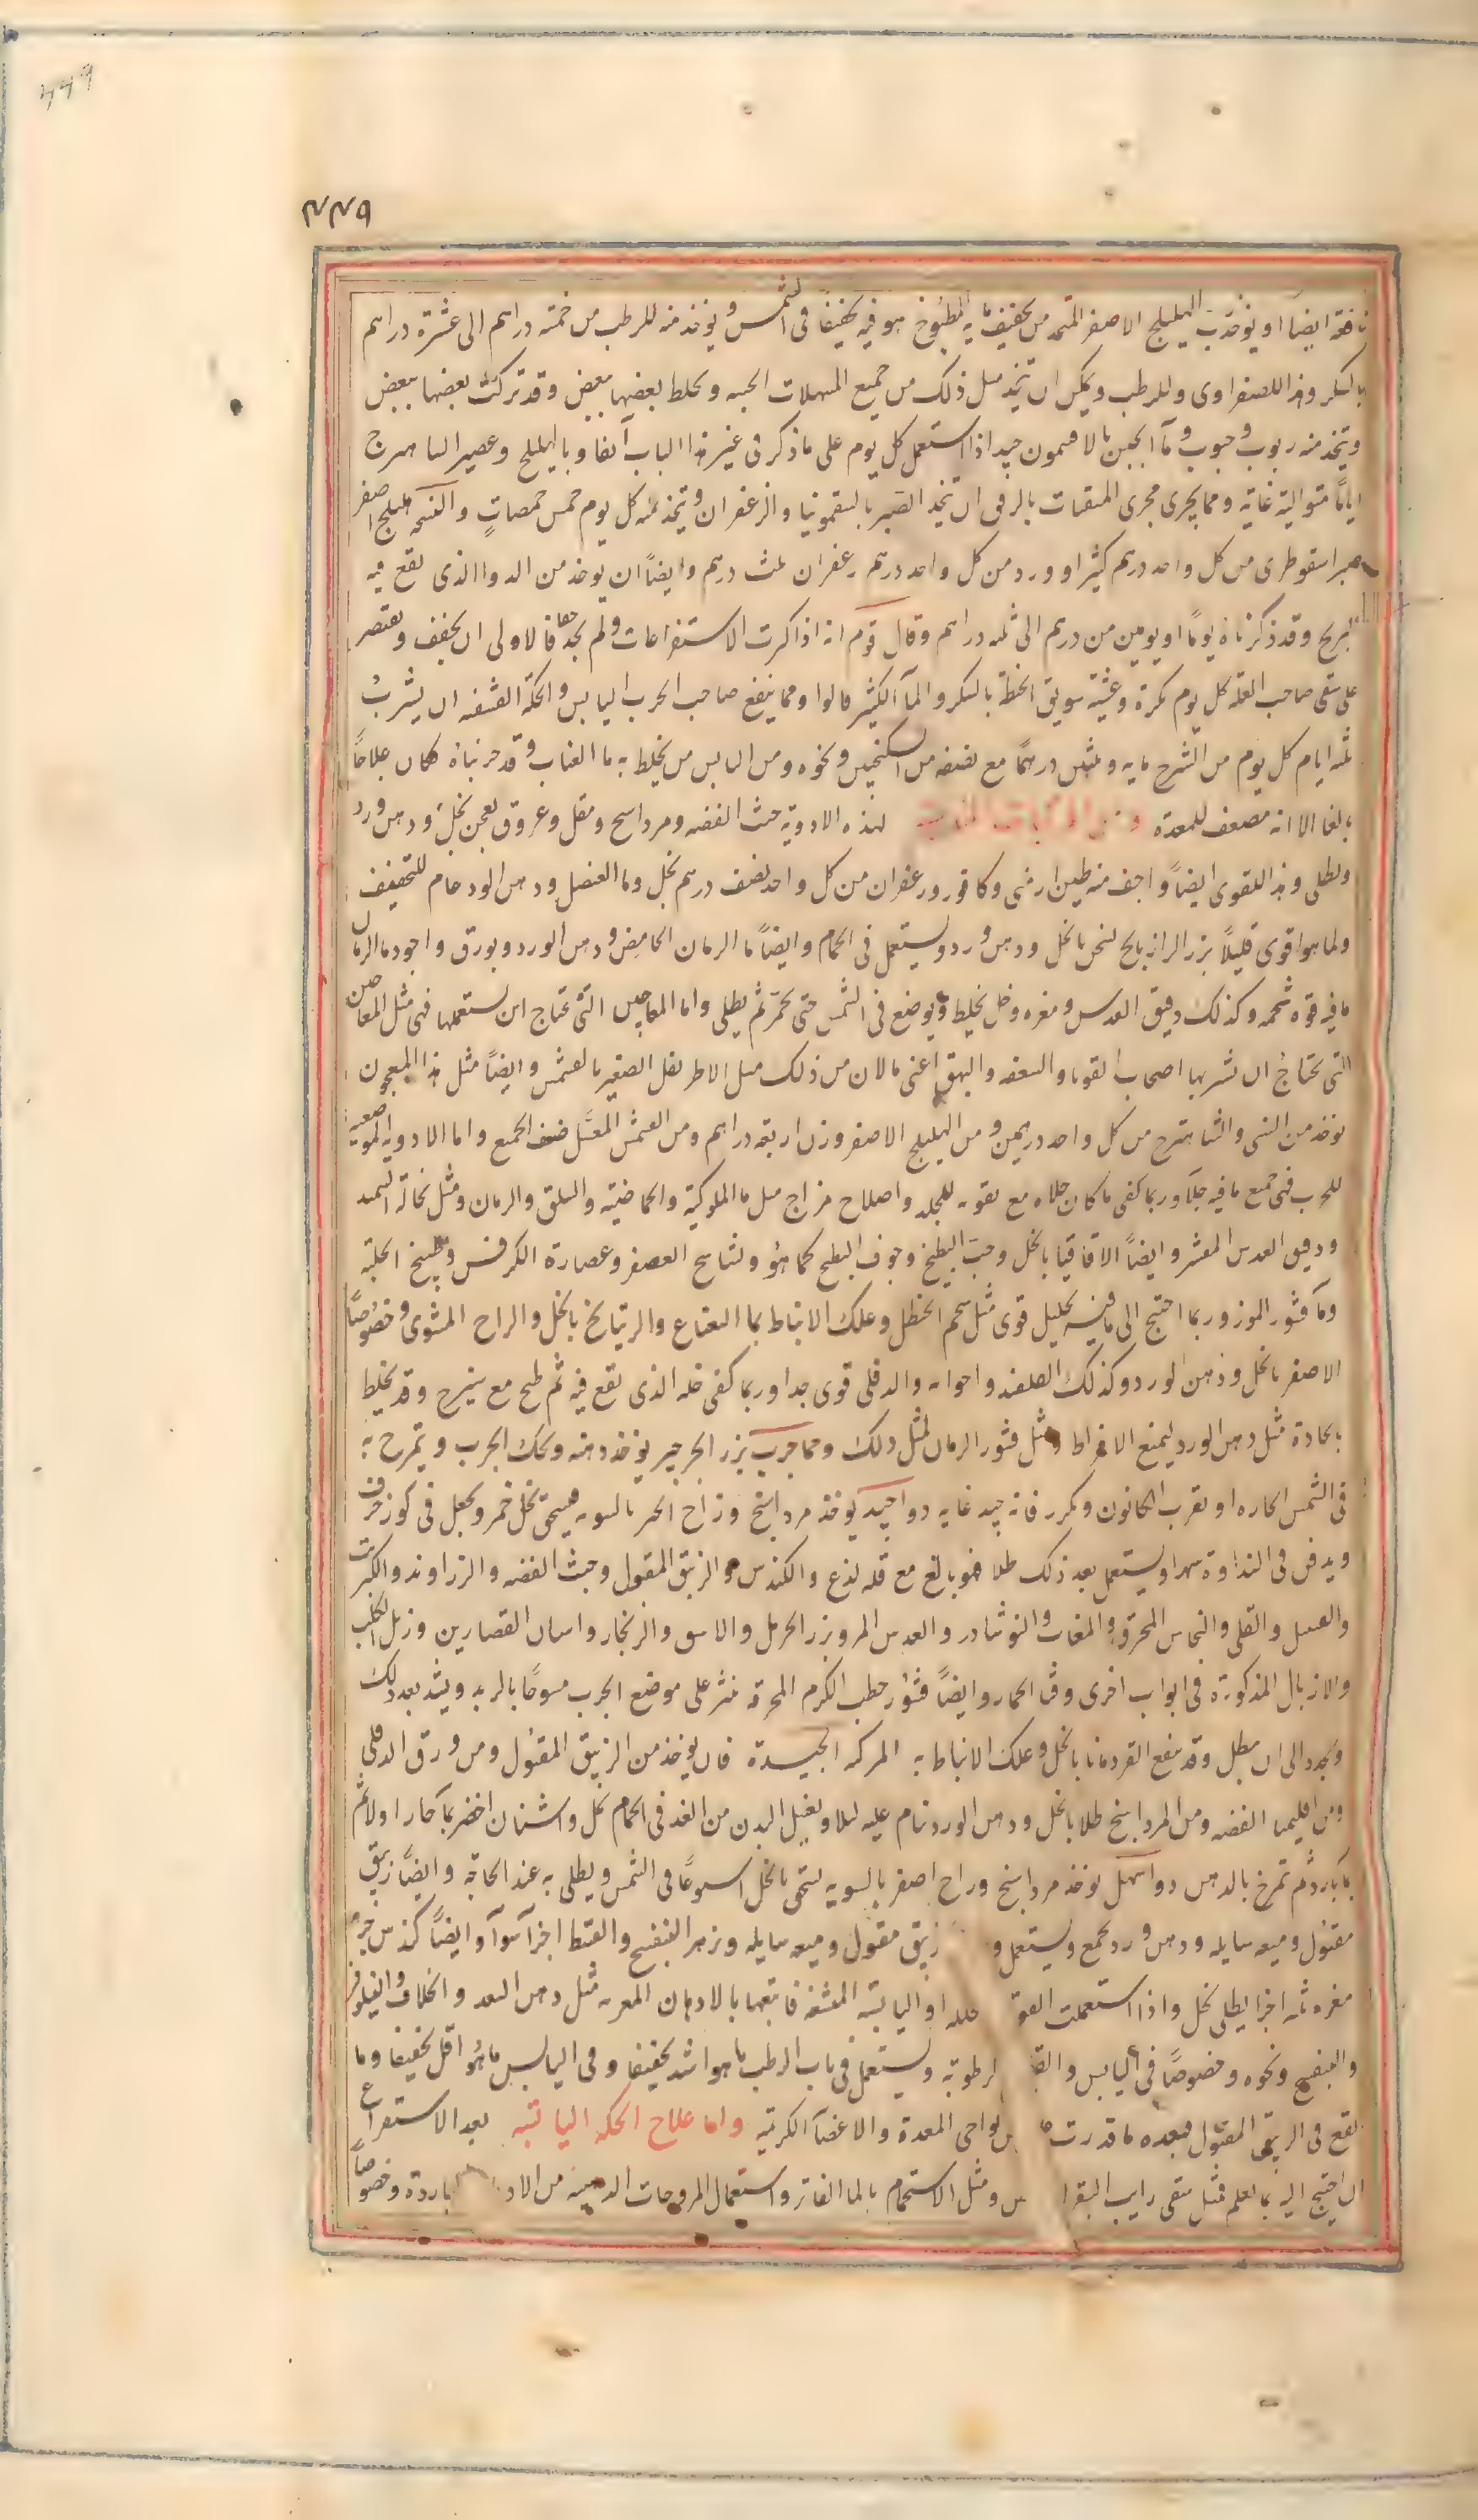 ۴۴۹
۴۴۹
نافعة ايضاً او يوخذ من الهليلج الاصفر المتخذ من تجفيف ماء المطبوخ هو فيه تجفيفاً فى الشمس و يوخذ منه للرطب من خمسة دراهم الى عشرة دراهم
بالسكر وهذا للصفراوى وللرطب ويمكن ان يتخذ مثل ذلك من جميع المسهلات الجيه وتخلط بعضها ببعض وقد تركت بعضها ببعض
ويتخذ منه ربوب وحبوب وماء الجبن بالافتيمون جيد اذا استعمل كل يوم على ما ذكر فى غير هذا الباب آنفا وبالهليلج وعصير الشاهترج
اياماً متوالية غاية ومما يجرى مجرى المنقيات بالرفق ان يتخذ الصبر بالسقمونيا والزعفران ويتخذ منه كل يوم خمس حمصات والنسخة هليلج اصفر
صبر اسقوطرى من كل واحد درهم كثيرا وورد من كل واحد درهم زعفران ثلث درهم وايضاً ان يوخذ من الدوا الذى يقع فيه
البرنج وقد ذكرناه يوماً او يومين من درهم الى ثلثه دراهم وقال قوم انه اذا كثرت الاستفراغات ولم ينجع فالاولى ان يخفف ويقتصر
على سقى صاحب العلة كل يوم بكرة وعشية سويق الحنطة بالسكر والمآ الكثير قالوا ومما ينفع صاحب الجرب اليابس والحكة القشفه ان يشرب
ثلثه ايام كل يوم من الشيرج مايه وثلثين درهماً مع نصفه من السكنجبين ونحوه ومن الناس من يخلط به ما العناب وقد جربناه فكان علاجاً
بالغا الا انه مضعف للمعدة لهذه الادوية خبث الفضه ومرداسنج ومقل وعروق يعجن بخل ودهن ورد
ويطلى وهذا للقوى ايضاً واخف منه طين ارمنى وكافور وزعفران من كل واحد نصف درهم بخل وما العنصل ودهن الورد حام للتخفيف
ولما هو اقوى قليلاً بزر الرازيانج يسخن بالخل ودهن ورد ويستعمل فى الحمام وايضاً ما الرمان الحامض ودهن الورد وبورق واجود ما الرمان
ما فيه قوة شحمه وكذلك دقيق العدس ومغره وخل يخلط ويوضع فى الشمس حتى يحمر ثم يطلى واما المعاجين التى تحتاج ان يستعملها فهى مثل المعاجين
التى يحتاج ان يشربها اصحاب القوبا والسعفه والبهق اعنى ما لان من ذلك مثل الاطريفل الصغير بالقشمش وايضاً مثل هذا المعجون
يوخذ من السنى والشاهترج من كل واحد درهمين ومن الهليلج الاصفر وزن اربعة دراهم ومن القشمش المعسل ضعف الجميع واما الادويه الموضعيه
للجرب فهى جميع ما فيه جلآ وربما كفى ما كان جلاه مع تقويه للجلد واصلاح مزاج مثل ما الملوكية والحماضية والسلق والرمان ومثل نخالة السميد
ودقيق العدس المقشر وايضاً الاقاقيا بالخل وحب البطيخ وجوف البطيخ كما هو ونشاستج العصفر وعصارة الكرفس وطبيخ الحلبة
ومآ قشور الموز وربما احتيج الى ما فيه تحليل قوى مثل شحم الحنظل وعلك الانباط بما النعناع والريتيانج بالخل والزاج المشوى وخصوصاً
الاصفر بالخل ودهن الورد وكذلك القلقند واخواته والدفلى قوى جدا وربما كفى خله الذى نقع فيه ثم طبخ مع شيرج وقد يخلط
بالحادة مثل دهن الورد ليمنع الافراط ومثل قشور الرمان لمثل ذلك ومما جرب بزر الجرجير يوخذ دهنه ويحك الجرب ويتمرخ به
فى الشمس الحاره او بقرب الكانون ويكرر فانه جيد غايه دوا جيد يوخذ مرداسنج وزاج الحبر بالسويه فيسحق بخل خمر ويجعل فى كوز خزف
ويدفن فى النداوة شهرا ويستعمل بعد ذلك طلا فهو بالغ مع قلة لذع والكندس والزيبق المقتول وخبث الفضه والزراوند والكبريت
والعسل والقلى والنحاس المحرق والمغاث والنوشادر والعدس المر وبزر الحرمل والاس والزنجار واشنان القصارين وزبل الكلب
والازبال المذكورة فى ابواب اخرى وقثا الحمار وايضاً قشور حطب الكرم المحرقة ينثر على موضع الجرب ممسوحاً بالزبد ويشد بعد ذلك
ويجدد الى ان يبطل وقد ينفع القردمانا بالخل وعلك الانباط به المركبه الجيدة فان يوخذ من الزيبق المقتول ومن ورق الدفلى
ومن اقليميا الفضه ومن المرداسنج طلا بالخل ودهن الورد ينام عليه ليلا ويغسل البدن من الغد فى الحمام بخل واشنان اخضر بمآ حار اولا ثم
بمآ بارد ثم تمرخ بالدهن دوا سهل يوخذ مرداسنج وزاج اصفر بالسويه يسحق بالخل اسبوعاً فى الشمس ويطلى به عند الحاجة وايضاً زيبق
مقتول وميعه سايله ودهن ورد يجمع ويستعمل و زيبق مقتول وميعه سايله وزهر البنفسج والقسط اجزآ سوآ وايضاً كندس جزء
مغره ثلثه اجزا يطلى بخل واذا استعملت القو حلله او اليابسة المقشفه فاتبعها بالادهان المغريه مثل دهن السعد والخلاف والنيلوفر
والبنفسج ونحوه وخصوصاً فى اليابس والقـ لرطوبة ويستعمل فى باب الرطب ما هو اشد تجفيفا وفى اليابس ما هو اقل تجفيفا وما
يقع فى الزيبق المقتول فبعده ما قدرت من نواحى المعدة والاعضآ الكريمة واما علاج الحكه اليابسة بعد الاستفراغ
ان احتيج اليه بما تعلم فمثل سقى رايب البقر ومثل الاستحمام بالما الفاتر واستعمال المروخات الدهنيه من الاد باردة وخصوصاً